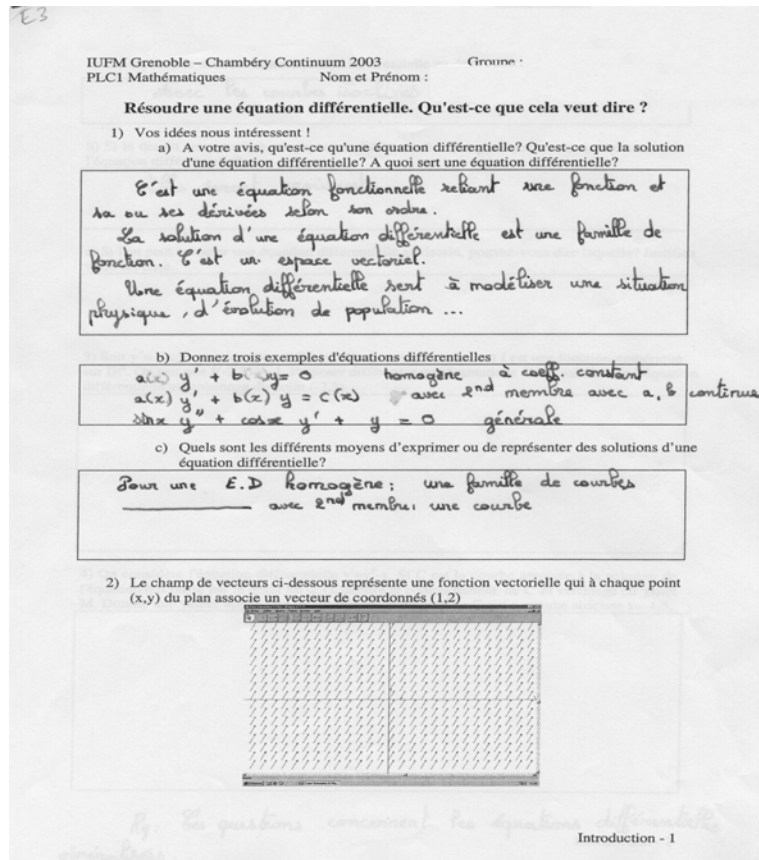 E3
IUFM Grenoble – Chambéry Continuum 2003 Groupe :
PLC1 Mathématiques Nom et Prénom :
Résoudre une équation différentielle. Qu'est-ce que cela veut dire ?
1) Vos idées nous intéressent !
a) A votre avis, qu'est-ce qu'une équation différentielle? Qu'est-ce que la solution
d'une équation différentielle? A quoi sert une équation différentielle?
C'est une équation fonctionnelle reliant une fonction et
sa ou ses dérivées selon son ordre.
La solution d'une équation différentielle est une famille de
fonction. C'est un espace vectoriel.
Une équation différentielle sert à modéliser une situation
physique, d'évolution de population ...
b) Donnez trois exemples d'équations différentielles
a(x) y' + b(x) y = 0 homogène à coeff. constant
a(x) y' + b(x) y = c(x) avec 2nd membre avec a, b continue
sinx y" + cosx y' + y = 0 générale
c) Quels sont les différents moyens d'exprimer ou de représenter des solutions d'une
équation différentielle?
Pour une E.D homogène : une famille de courbes
avec 2nd membre: une courbe
2) Le champ de vecteurs ci-dessous représente une fonction vectorielle qui à chaque point
(x,y) du plan associe un vecteur de coordonnés (1,2)
Rq Les questions concernent les équations différentielles
Introduction - 1